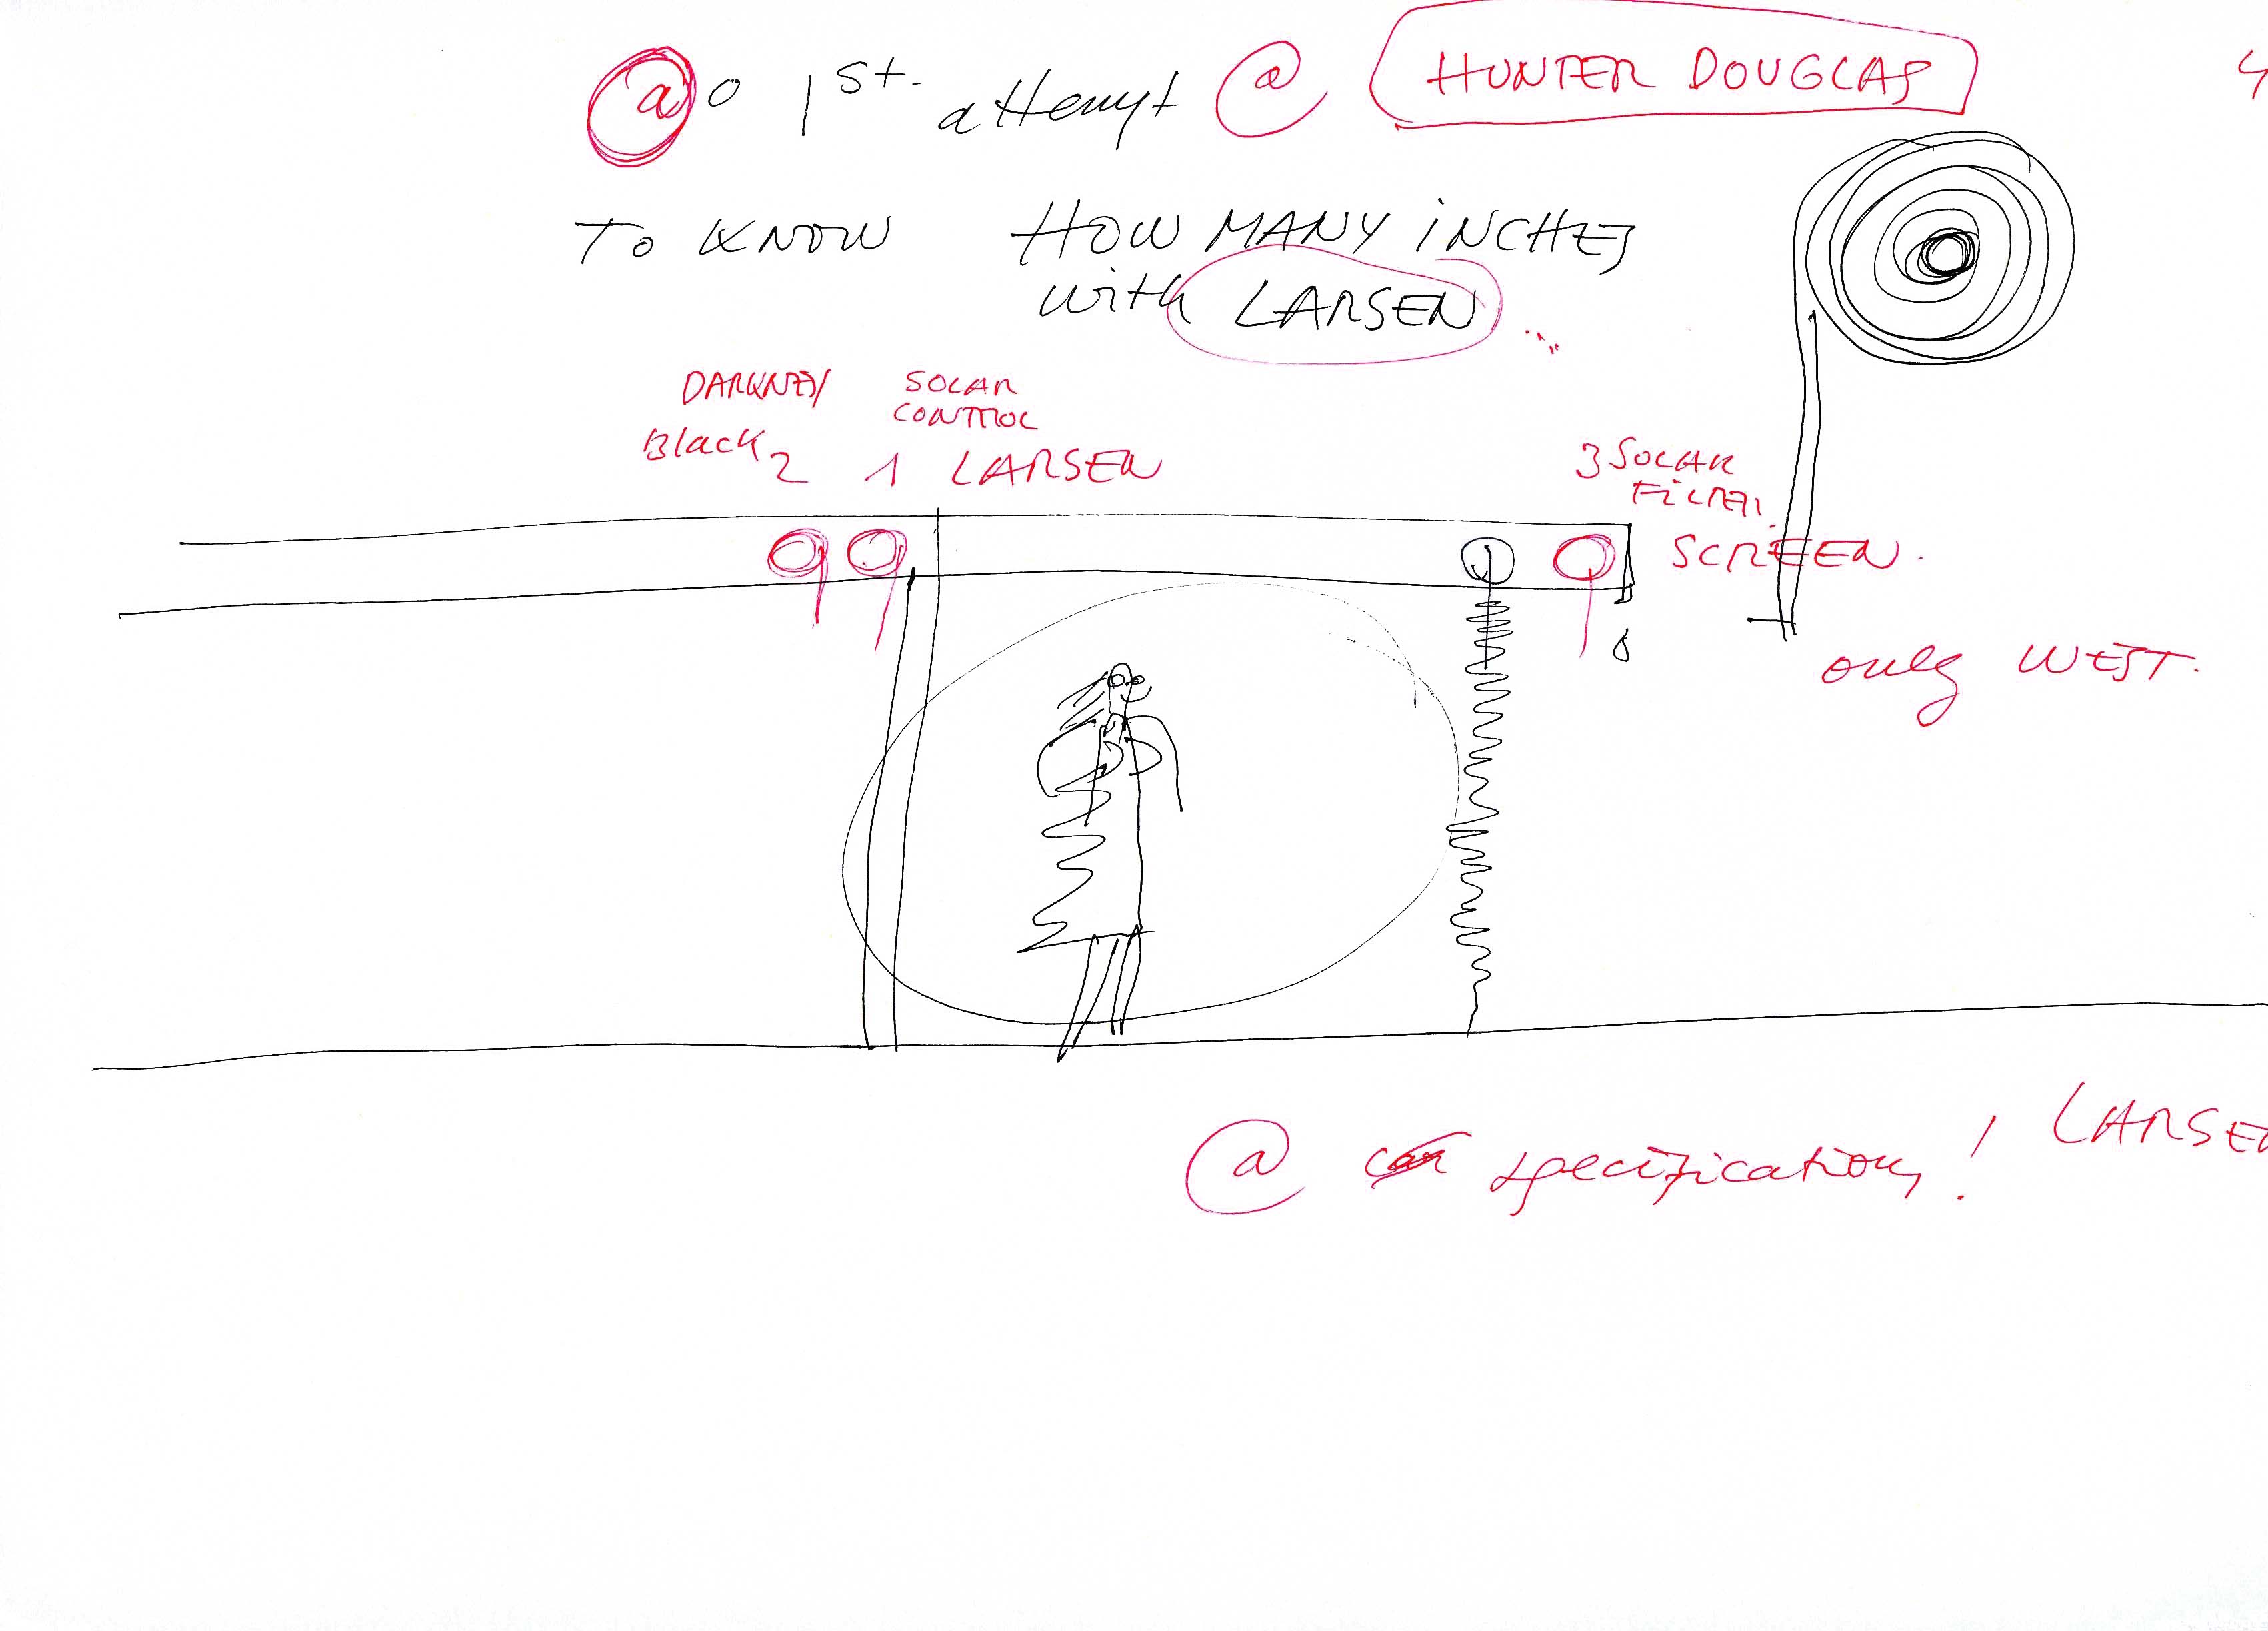 @ o 1st. attempt @ HUNTER DOUGLAS
TO KNOW HOW MANY INCHES
with LARSEN
DARKNESS SOLAR
CONTROL
Black 2 1 LARSEN
3 SOLAR
FILTER.
SCREEN.
only WEST.
@ specifications! LARSEN